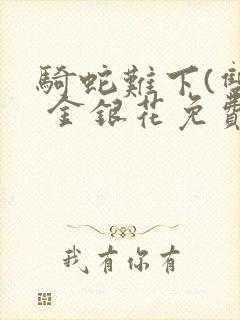 騎蛇難下(雙
金銀花免費
我有你有